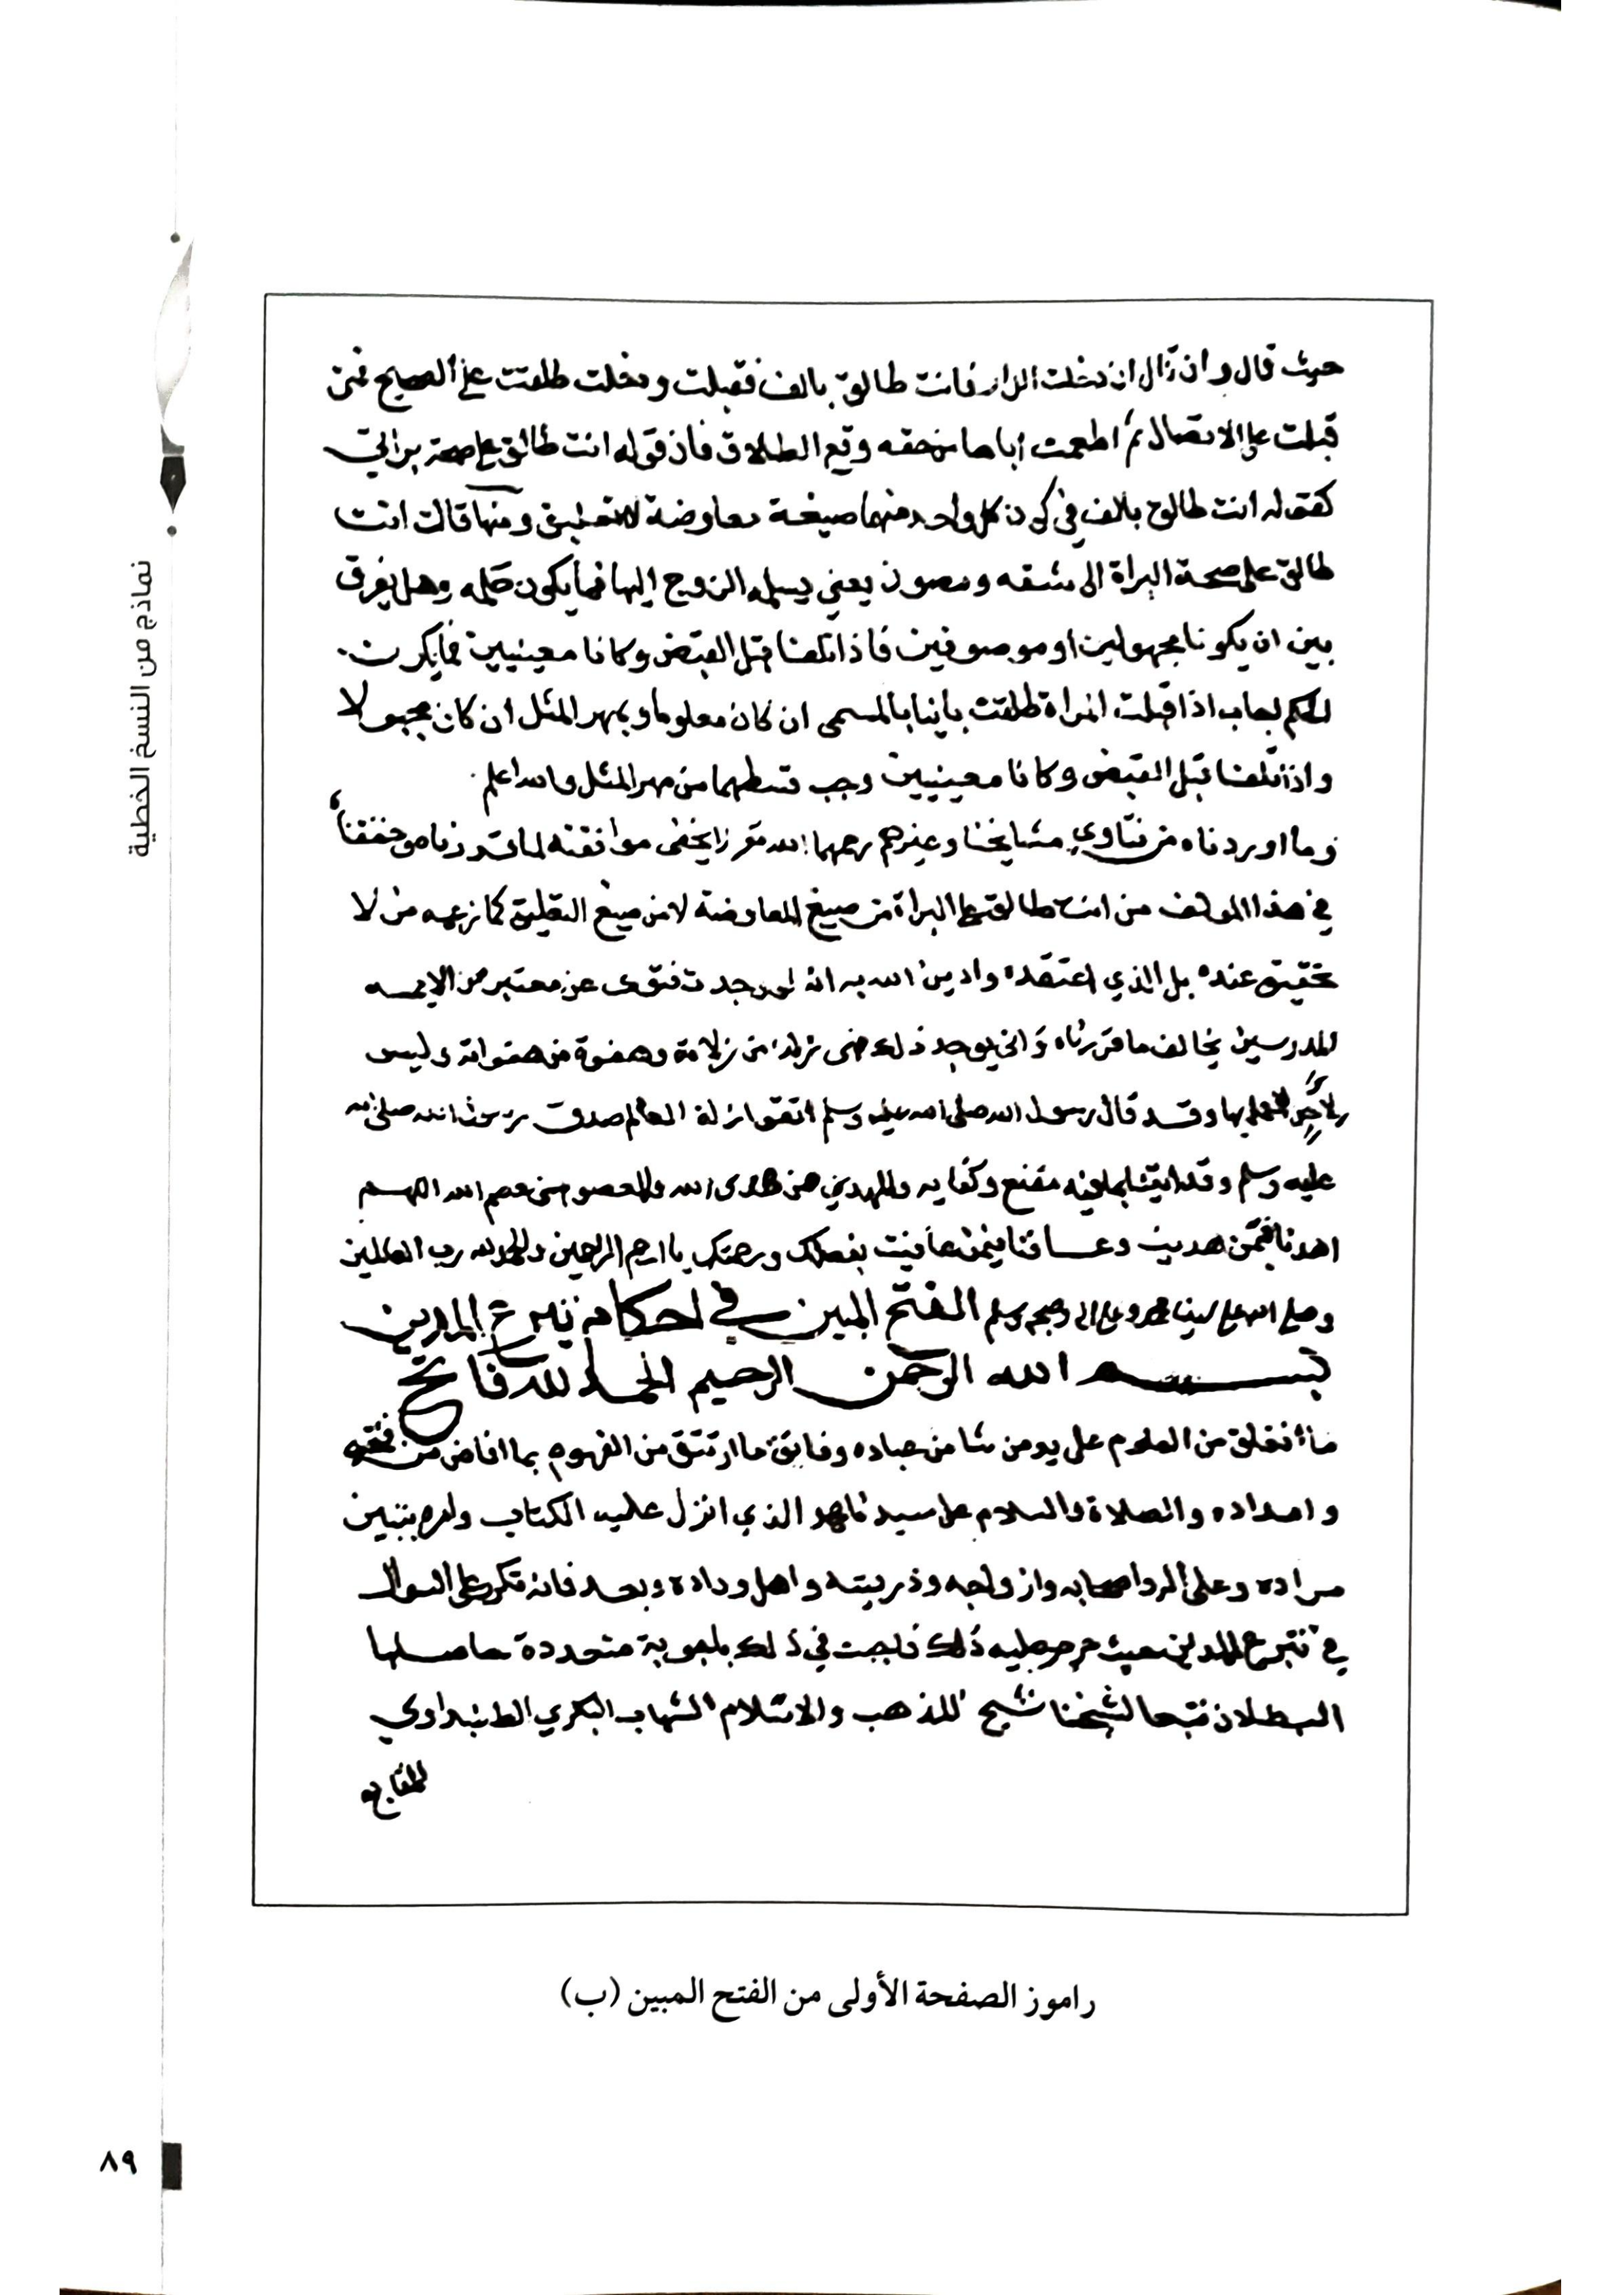 حيث قال وان قال ان دخلت الدار فانت طالق بالف فقبلت ودخلت طلقت على الصحيح فمن
قبلت على الاتصال ثم اطعمت اباها من حقه وقع الطلاق فان قوله انت طالق على صحة براتي
كقوله انت طالق بالف في كون كل واحد منهما صيغة معاوضة لا تعليق ومنها قالت انت
طالق على صحة البراة الى شقه وصون يعني يسلم الزوج إليها فما يكون حكمه وهل يفرق
بين ان يكونا مجهولين او موصوفين فاذا تلفا قبل القبض وكانا معينيين فما يكون
الحكم اجاب اذا قبلت المراة طلقت باينا بالمسمى ان كان معلوما وبمهر المثل ان كان مجهولا
واذا تلفا قبل القبض وكانا معينيين وجب قسطهما من مهر المثل والله اعلم
وما اوردناه من فتاوي مشايخنا وغيرهم رحمهم الله لا يخفى موافقته لما
في هذا المولف من انت طالق على البراة من صيغ المعاوضة لا من صيغ التعليق كما زعمه من لا
تحقيق عنده بل الذي اعتقده وادين الله به انه لو وجدت فتوى عن معتبر من الايمه
المدرسين يخالف ما قررناه وانى يوجد ذلك فهى زلة من زلاته وهفوة من هفواته وليس
العمل بها وقد قال رسول الله صلى الله عليه وسلم اتقوا زلة العالم صدق رسول الله صلى الله
عليه وسلم وقد اتيت بما فيه مقنع وكفايه والمهدي من هدى الله والمعصوم من عصم الله اللهم
اهدنا فيمن هديت وعافنا فيمن عافيت بفضلك ورحمتك يا ارحم الراحمين والحمد لله رب العالمين
وصلى الله على سيدنا محمد وعلى اله وصحبه وسلم الفتح المبين في احكام تبرع المدين
بسم الله الرحمن الرحيم الحمد لله فاتح
ما انغلق من العلوم على يد من شا من عباده وفاتق ما ارتتق من الفهوم بما افاض من فتحه
وامداده والصلاة والسلام على سيدنا محمد الذي انزل عليه الكتاب وامره بتبيين
مراده وعلى اله واصحابه وازواجه وذريته واهل وداده وبعد فانه تكرر على السوال
في تبرع المدين حيث حرم عليه ذلك فاجبت في ذلك باجوبة متعددة حاصلها
البطلان تبعا لشيخنا شيخ المذهب والاسلام الشهاب البكري الطنبداوي
راموز الصفحة الأولى من الفتح المبين (ب)
نماذج من النسخ الخطية
٨٩